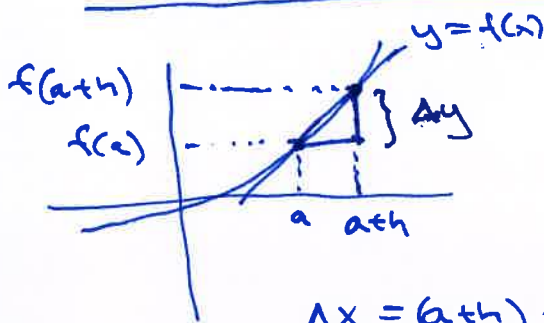 y = f(x)
f(a+h)
f(a)
} Δy
a a+h
Δx = (a+h)